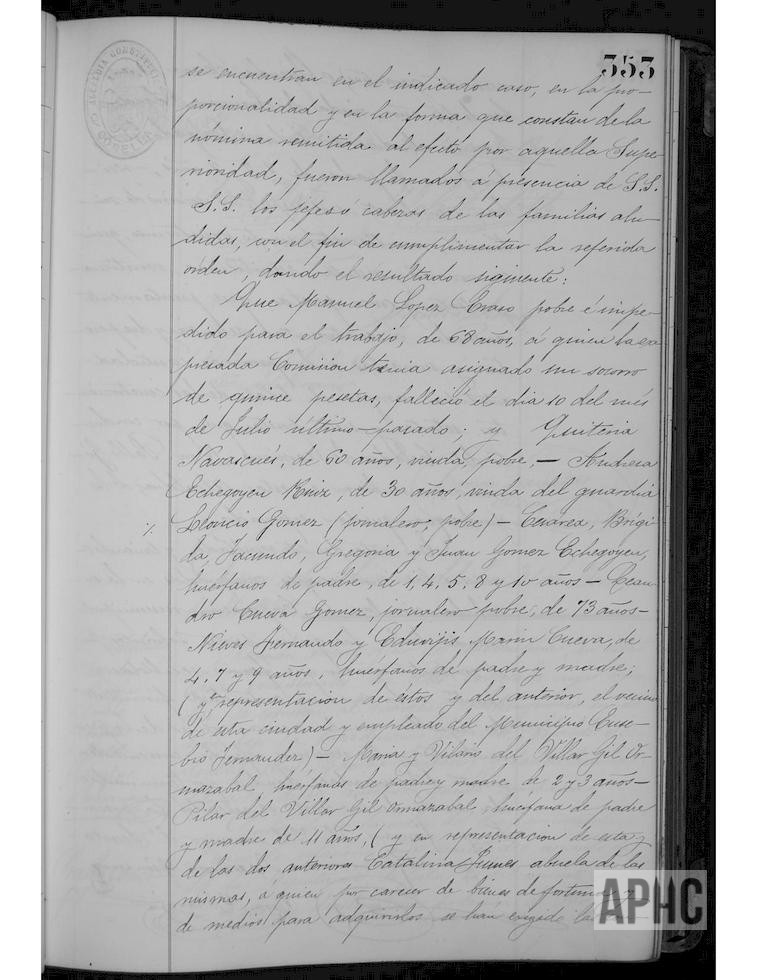 353
ALCALDIA CONSTITUCIONAL
se encuentran en el indicado caso, en la pro-
porcionalidad y en la forma que constan de la
nómina remitida al efecto por aquella Supe-
rioridad, fueron llamados á presencia de S.S.
S.S. los jefes ó cabezas de las familias alu-
didas, con el fin de cumplimentar la referida
orden, dando el resultado siguiente:
Que Manuel Lopez Craso pobre é impe-
dido para el trabajo, de 68 años, á quien la ex
presada Comision tenia asignado un socorro
de quince pesetas, falleció el dia 10 del mes
de Julio último pasado; y Quiteria
Navascués, de 60 años, viuda, pobre, — Andresa
Echegoyen Ruiz, de 30 años, viuda del guardia
Leoncio Gomez (jornalero, pobre) — Cesarea, Brigi-
da, Facundo, Gregoria y Juan Gomez Echegoyen,
huérfanos de padre, de 1, 4, 5, 8 y 10 años — Lean-
dro Cueva Gomez, jornalero pobre, de 73 años —
Nieves Fernando y Eduvijis Marin Cueva, de
4, 7 y 9 años, huerfanos de padre y madre;
( y representacion de éstos y del anterior, el vecino
de esta ciudad y empleado del Municipio Euse-
bio Fernandez) — Maria y Hilario del Villar Gil Or-
mazabal, huerfanos de padre y madre de 2 y 3 años —
Pilar del Villar Gil Ormazabal, huérfana de padre
y madre de 11 años, ( y en representacion de esta y
de los dos anteriores Catalina Funes abuela de las
mismas, á quien por carecer de bienes de fortuna y
de medios para adquirirlos se han exigido
APHC